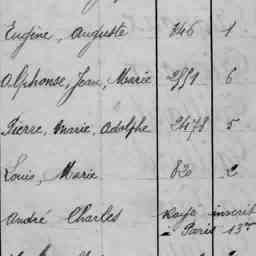 Eugène, Auguste 846 1
Alphonse, Jean, Marie 2551 6
Pierre, Marie, Adolphe 2478 5
Louis, Marie 820 2
André Charles Rayé inscrit
à Paris 13me